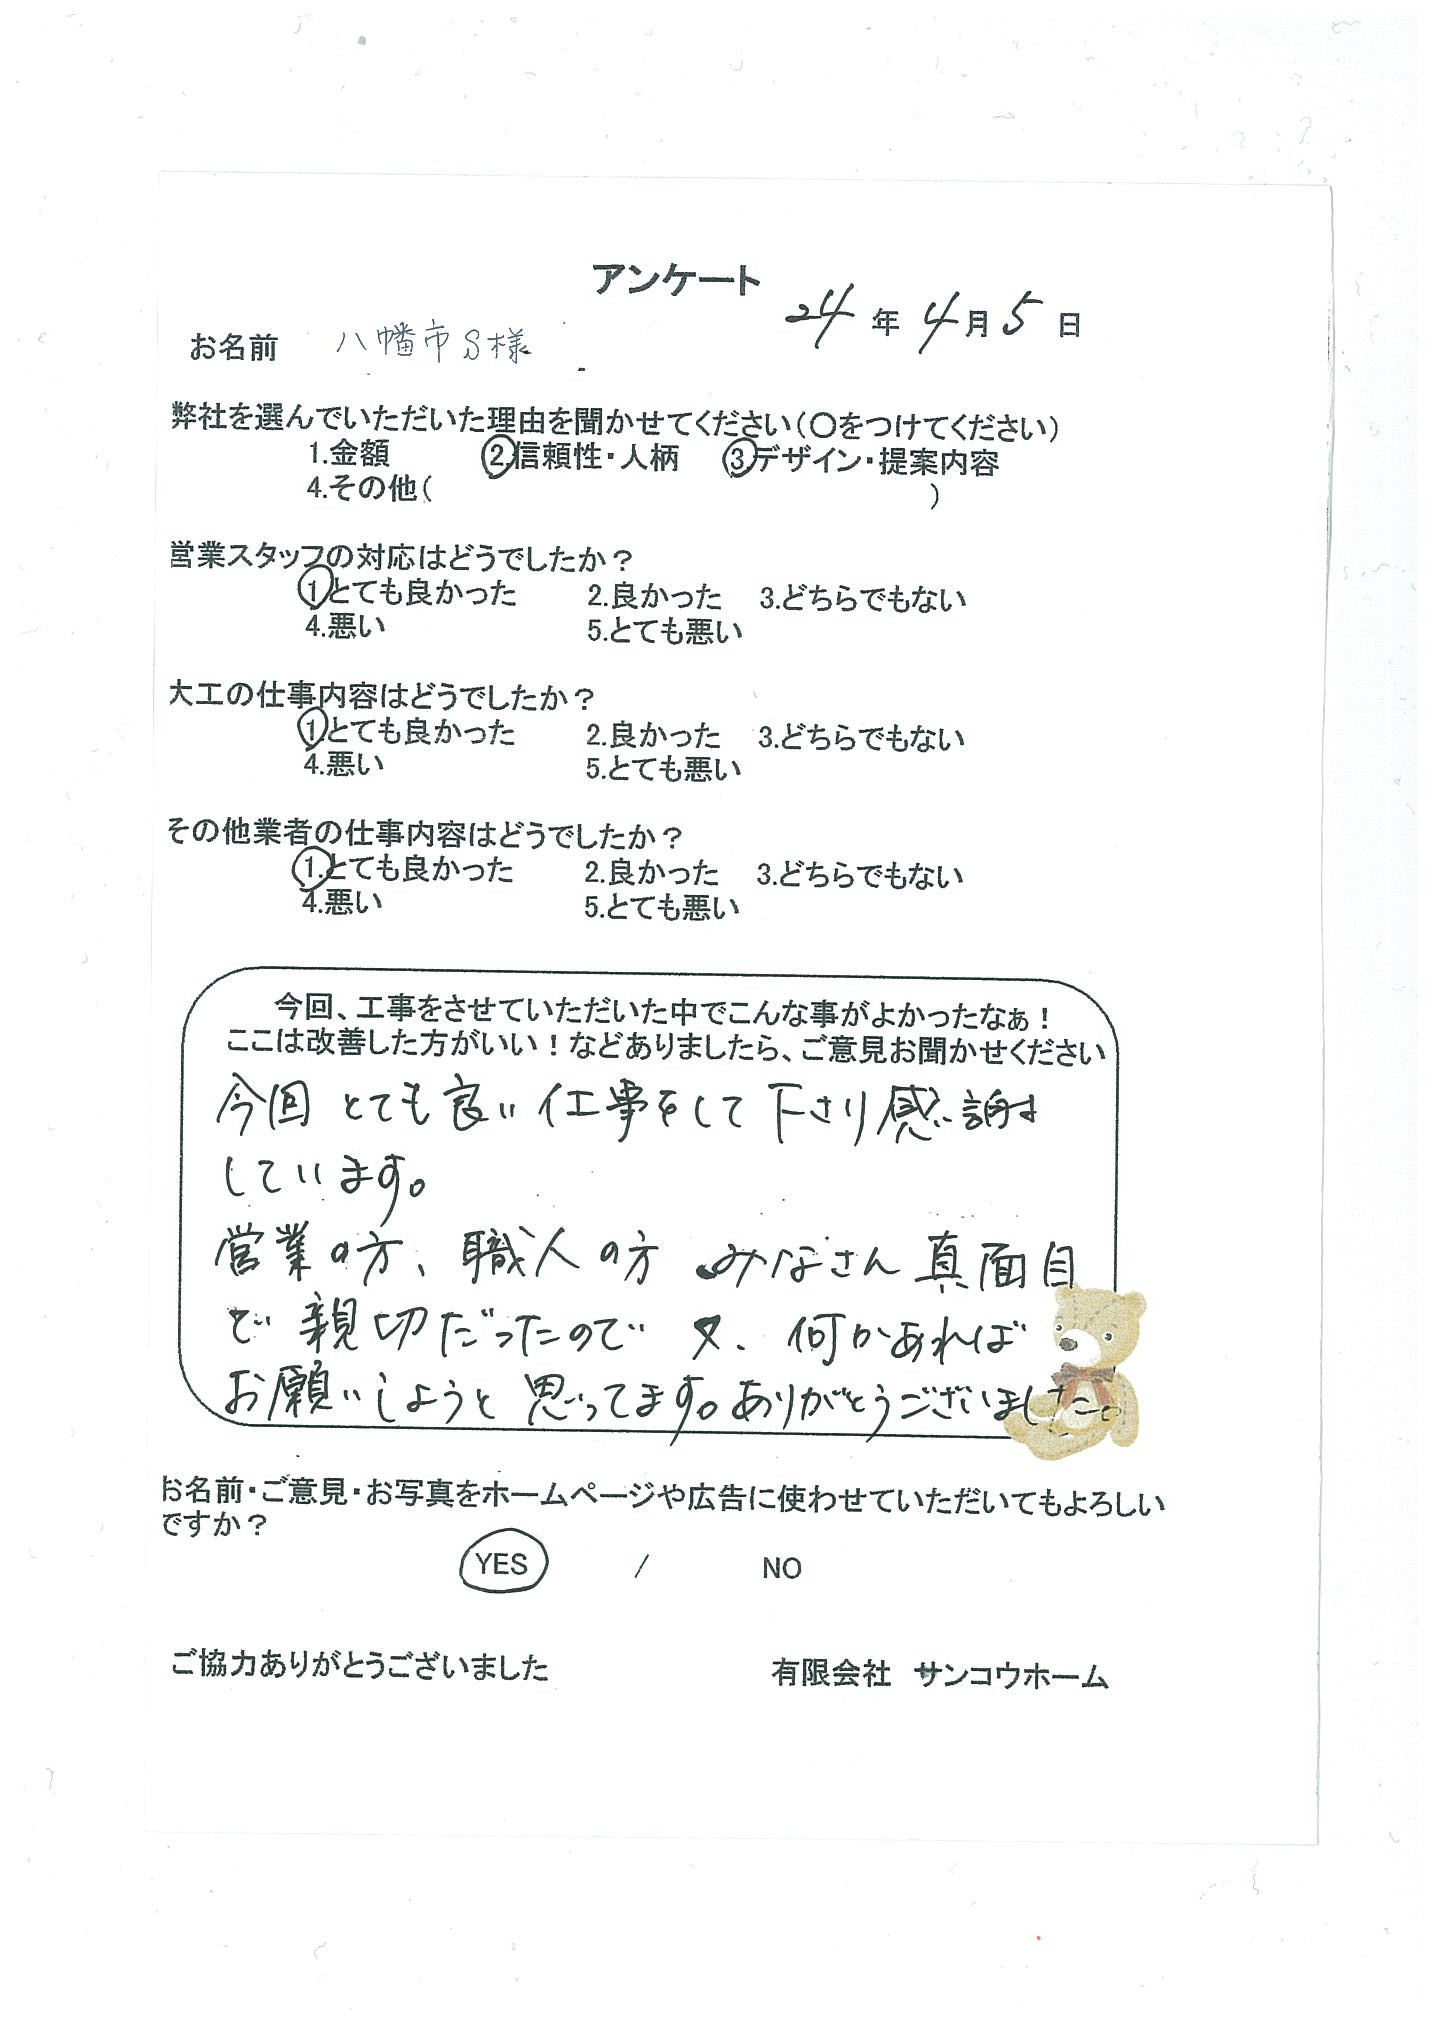 アンケート
24年4月5日
お名前 八幡市S様
弊社を選んでいただいた理由を聞かせてください(〇をつけてください)
1.金額 2.信頼性・人柄 3.デザイン・提案内容
4.その他( )
営業スタッフの対応はどうでしたか?
1.とても良かった 2.良かった 3.どちらでもない
4.悪い 5.とても悪い
大工の仕事内容はどうでしたか?
1.とても良かった 2.良かった 3.どちらでもない
4.悪い 5.とても悪い
その他業者の仕事内容はどうでしたか?
1.とても良かった 2.良かった 3.どちらでもない
4.悪い 5.とても悪い
今回、工事をさせていただいた中でこんな事がよかったなぁ!
ここは改善した方がいい!などありましたら、ご意見お聞かせください
今回とても良い仕事をして下さり感謝
しています。
営業の方、職人の方 みなさん真面目
で親切だったので又、何かあれば
お願いしようと思ってます。ありがとうございました。
お名前・ご意見・お写真をホームページや広告に使わせていただいてもよろしい
ですか?
YES / NO
ご協力ありがとうございました 有限会社 サンコウホーム